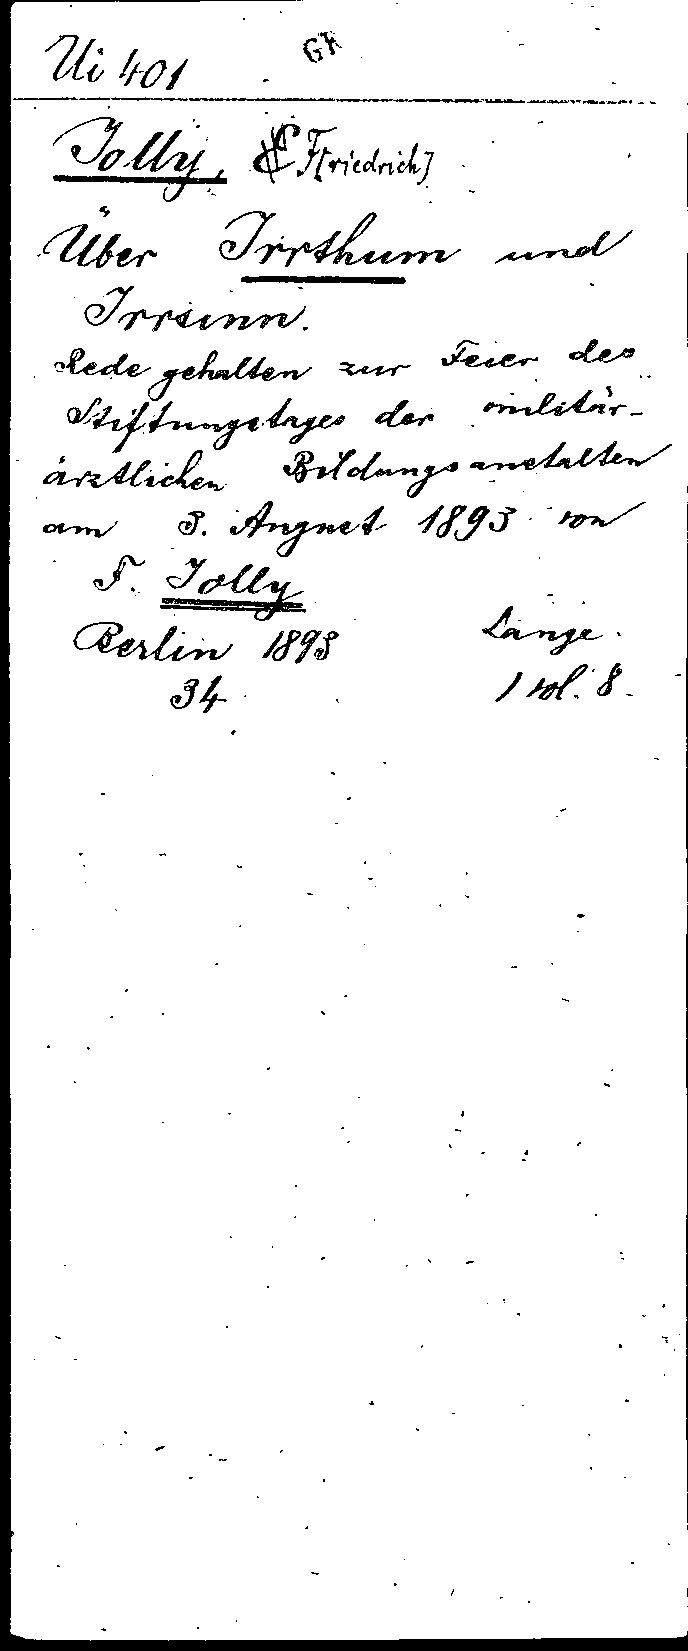 Ui 401 GR
Jolly, F[riedrich]
Über Irrthum und
Irrsinn.
Rede gehalten zur Feier des
Stiftungstages der militär-
ärztlichen Bildungsanstalten
am 3. August 1893 von
F. Jolly
Berlin 1893 Lange.
34 1 vol. 8.